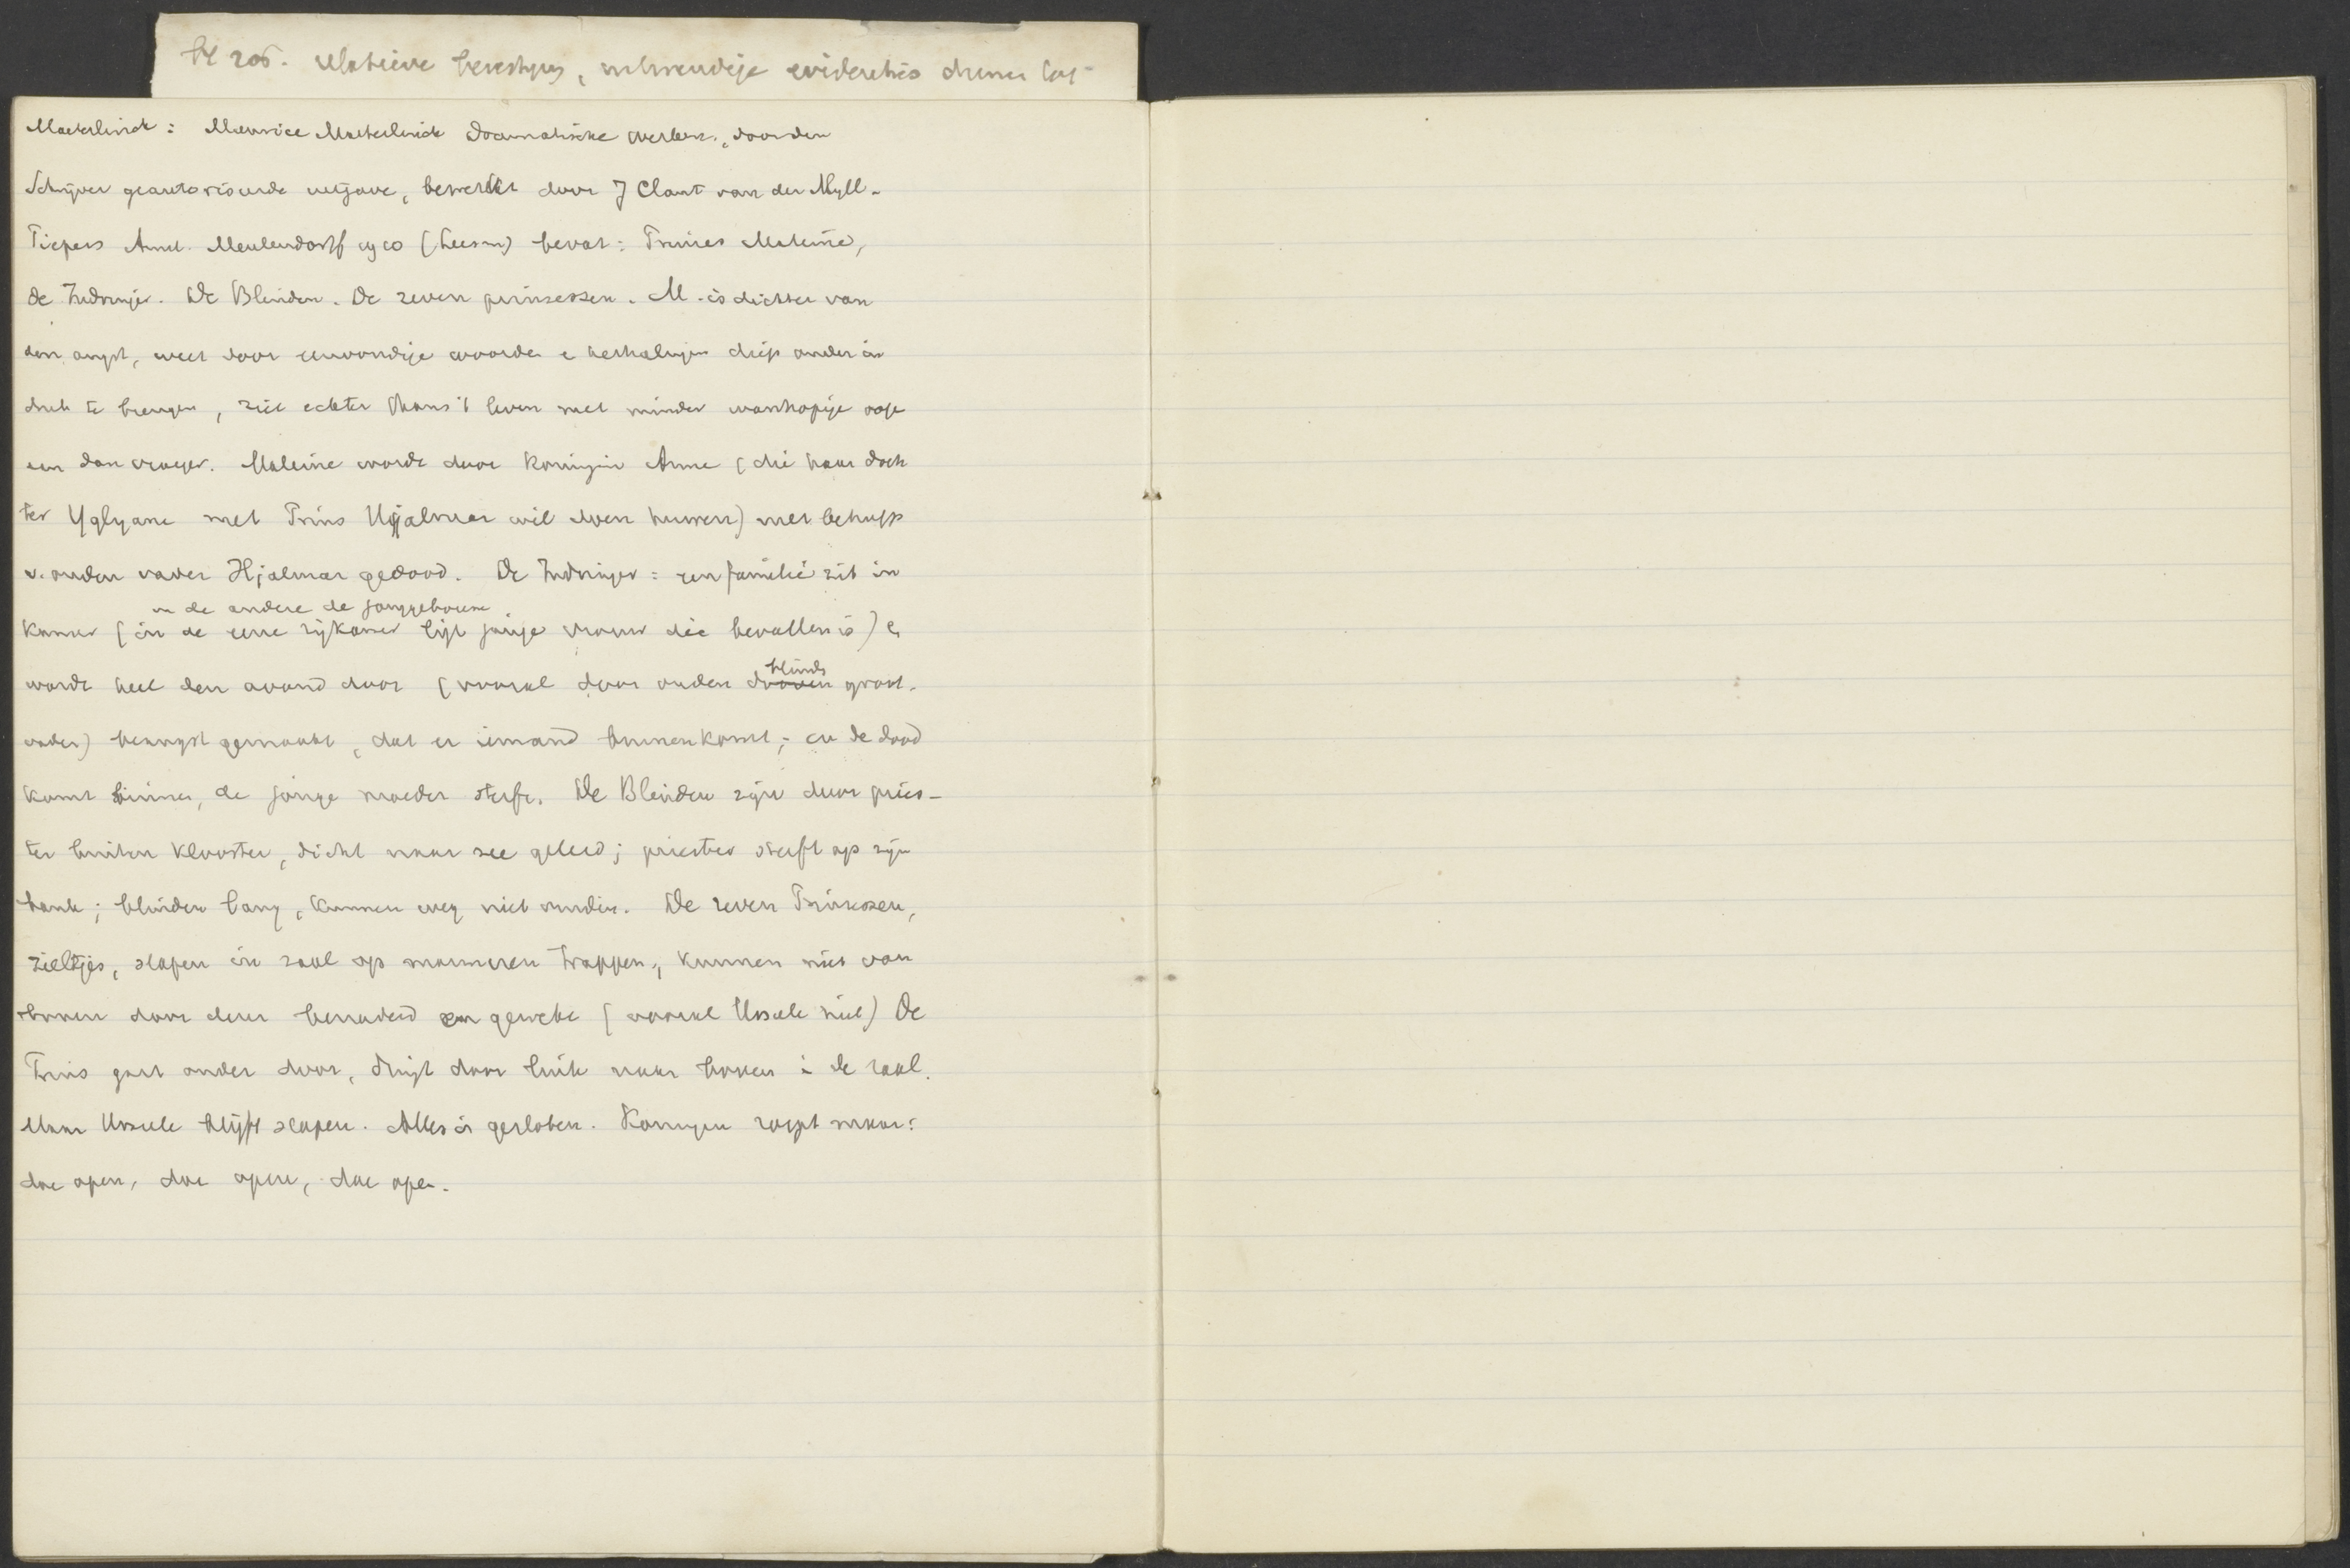 bl 205. relatieve bevestiging, inwendige evidenties
Maeterlinck: Maurice Maeterlinck Dramatische werken, door den
Schrijver geautoriseerde uitgave, bewerkt door J Clant van der Myll-
Piepers Amst. Meulenhoff (Leesm) bevat: Prinses Maleine,
de Indringer. De Blinden. De zeven prinsessen. M. is dichter van
den angst, weet door eenvoudige woorden e herhalingen diep onder in
druk te brengen, ziet echter thans 't leven met minder wanhopige oog
en dan vroeger. Maleine wordt door Koningin Anne (die haar doch
ter Uglyane met Prins Hjalmar wil doen huwen) met behulp
v. ouden vader Hjalmar gedood. De Indringer: een familie zit in
in de andere de jonggeborene
kamer (in de eene zijkamer ligt jonge vrouw die bevallen is) e
wordt heel den avond door (vooral door ouden dooven blinde groot-
vader) beangst gemaakt, dat er iemand binnenkomt; en de dood
komt binnen, de jonge moeder sterft. De Blinden zijn door pries-
ter buiten klooster, dicht naar zee geleid; priester sterft op zijn
bank; blinden bang, kunnen weg niet vinden. De zeven Prinsessen,
zieltjes, slapen in zaal op marmeren trappen, kunnen niet van
boven door deur benaderd en gewekt (vooral Ursule niet) De
Prins gaat onder door, dringt door luik naar boven i de zaal.
Maar Ursule blijft slapen. Alles is gesloten. Koningin roept maar:
doe open, doe open, doe open.